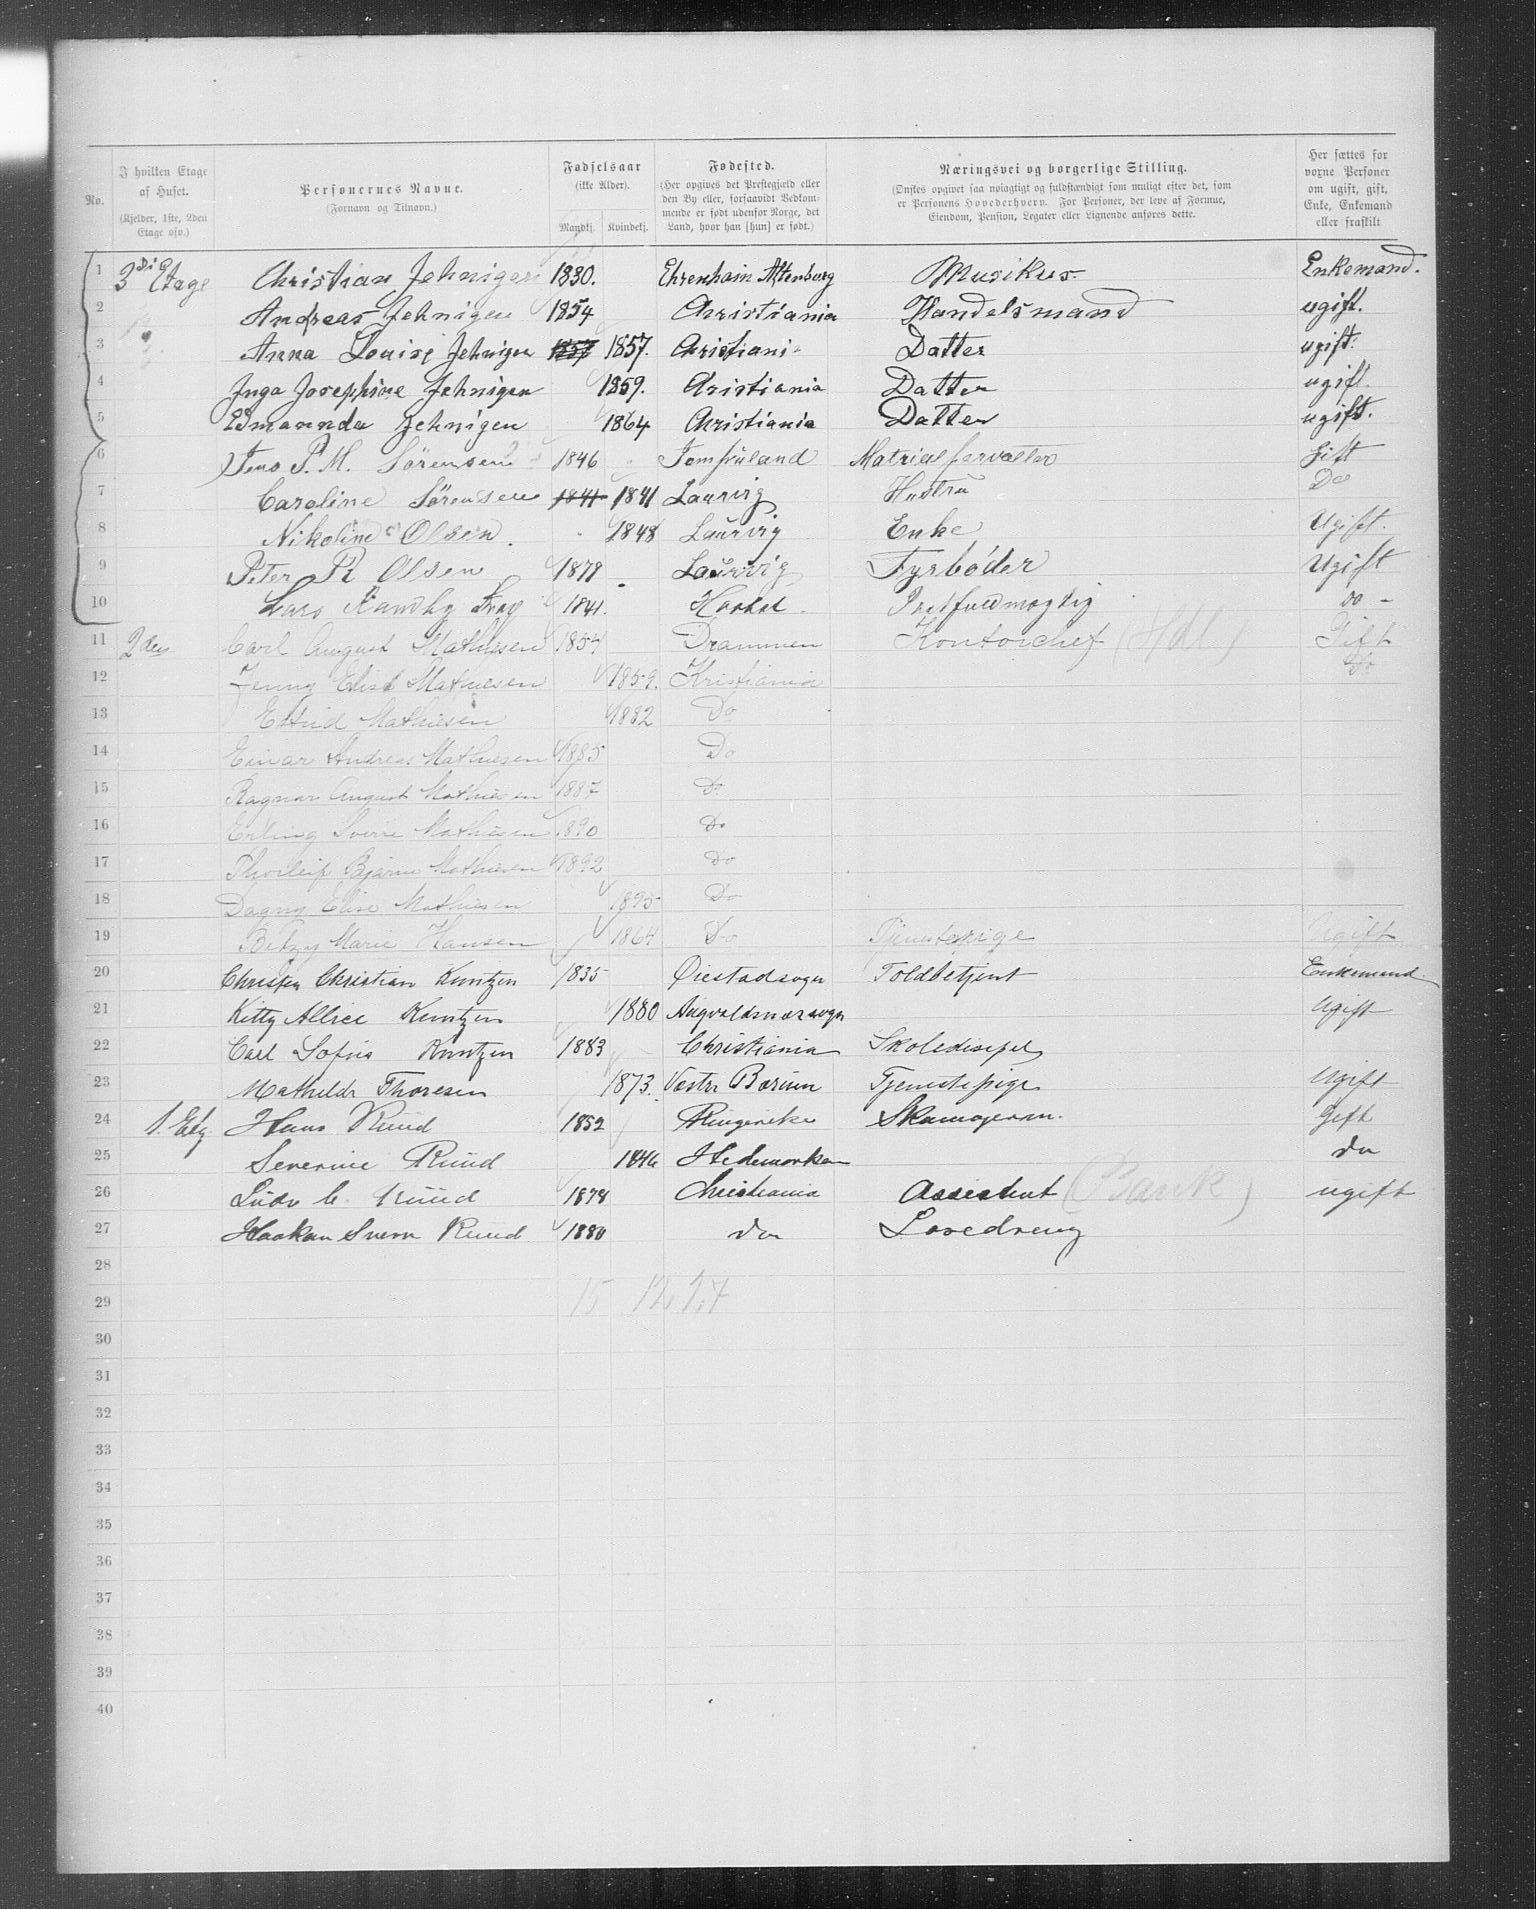 No.
I hvilken Etage af Huset.
(Kjelder, 1ste, 2den Etage osv.)
Personernes Navne.
(Fornavn og Tilnavn.)
Fødselsaar
(ikke Alder).
Mandkj. Kvindekj.
Fødested.
(Her opgives det Prestegjæld eller den By eller, forsaavidt Vedkommende er født udenfor Norge, det Land, hvor han [hun] er født.)
Næringsvei og borgerlige Stilling.
(Ønskes opgivet saa nøiagtigt og fuldstændigt som muligt efter det, som er Personens Hovederhverv. For Personer, der leve af Formue, Eiendom, Pension, Legater eller Lignende anføres dette.
Her sættes for voxne Personer om ugift, gift, Enke, Enkemand eller fraskilt
1 3die Etage Christian Jehnigen 1830. Ehrenhain Altenburg Musikus Enkemand.
2 Andreas Jehnigen 1854 Christiania Handelsmand ugift.
3 Anna Louise Jehnigen 1857 1857. Christiania Datter ugift.
4 Inga Josephine Jehnigen 1859. Christiania Datter ugift.
5 Edmannda Jehnigen 1864 Christiania Datter ugift.
6 Jens P. M. Sørensen 1846 Jomfruland Matrialforvalter Gift
7 Caroline Sørensen 1841 1841 Laurvig Hustru Do
8 Nikoline Olsen. 1848 Laurvig Enke Ugift.
9 Peter Olsen 1878 Laurvig Fyrbøder Ugift
10 Lars 1841. do -
11 2den Carl August Mathiesen 1854 Drammen Kontorchef (Hdl) Gift
12 Jenny Elise Mathiesen 1859. Kristiania Do
13 Estrid Mathiesen 1882 Do
14 Einar Andreas Mathiesen 1885 Do
15 Ragnar August Mathiesen 1887 Do
16 Erling Sverre Mathiesen 1890 Do
17 Thorleif Bjarne Mathiesen 1892 Do
18 Dagny Elise Mathiesen 1895 Do
19 Betzy Marie Hansen 1864 Do Tjenestepige Ugift
20 Christen Christian Kuntzen 1835 Øiestadsogn Toldbetjent Enkemand.
21 Kitty Allice Kuntzen 1880 Augvaldsnæssogn Ugift
22 Carl Sofus Kuntzen 1883 Christiania Skoledisipel
23 Mathilde Thoresen 1873. Vestre Bærum Tjenestepige Ugift
24 1. Etg Hans Ruud 1852 Ringerike Skomagersv. Gift
25 Severine Ruud 1846 Hedemarken do
26 Ludv C. Ruud 1878 Christiania Assistent (Bank) ugift
27 Haakon Sverre Ruud 1880 do Løsedreng
28
29 15 12 27
30
31
32
33
34
35
36
37
38
39
40